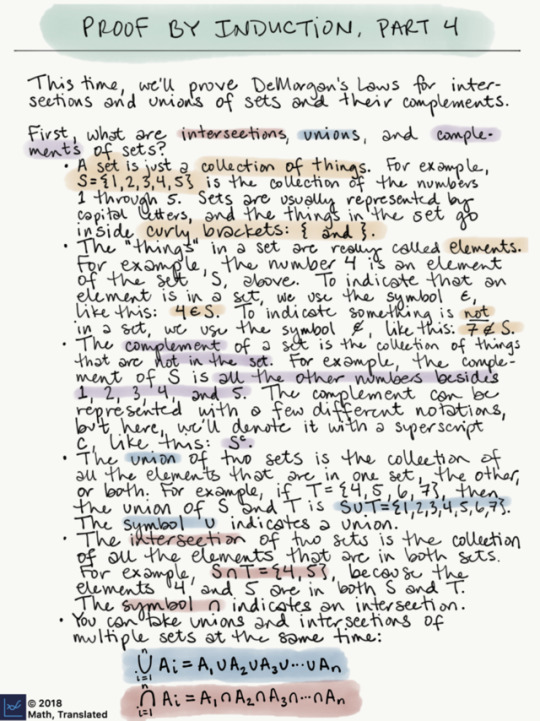 PROOF BY INDUCTION, PART 4
This time, we'll prove DeMorgan's Laws for inter-
sections and unions of sets and their complements.
First, what are intersections, unions, and comple-
ments of sets?
• A set is just a collection of things. For example,
S={1,2,3,4,5} is the collection of the numbers
1 through 5. Sets are usually represented by
capital letters, and the things in the set go
inside curly brackets: { and }.
• The "things" in a set are really called elements.
For example, the number 4 is an element
of the set S, above. To indicate that an
element is in a set, we use the symbol ∈,
like this: 4∈S. To indicate something is not
in a set, we use the symbol ∉, like this: 7∉S.
• The complement of a set is the collection of things
that are not in the set. For example, the comple-
ment of S is all the other numbers besides
1, 2, 3, 4, and 5. The complement can be
represented with a few different notations,
but here, we'll denote it with a superscript
c, like this: Sᶜ.
• The union of two sets is the collection of
all the elements that are in one set, the other,
or both. For example, if T={4,5,6,7}, then
the union of S and T is S∪T={1,2,3,4,5,6,7}.
The symbol ∪ indicates a union.
• The intersection of two sets is the collection
of all the elements that are in both sets.
For example, S∩T={4,5}, because the
elements 4 and 5 are in both S and T.
The symbol ∩ indicates an intersection.
• You can take unions and intersections of
multiple sets at the same time:
n
∪ Ai = A₁∪A₂∪A₃∪···∪Aₙ
i=1
n
∩ Ai = A₁∩A₂∩A₃∩···∩Aₙ
i=1
© 2018
Math, Translated